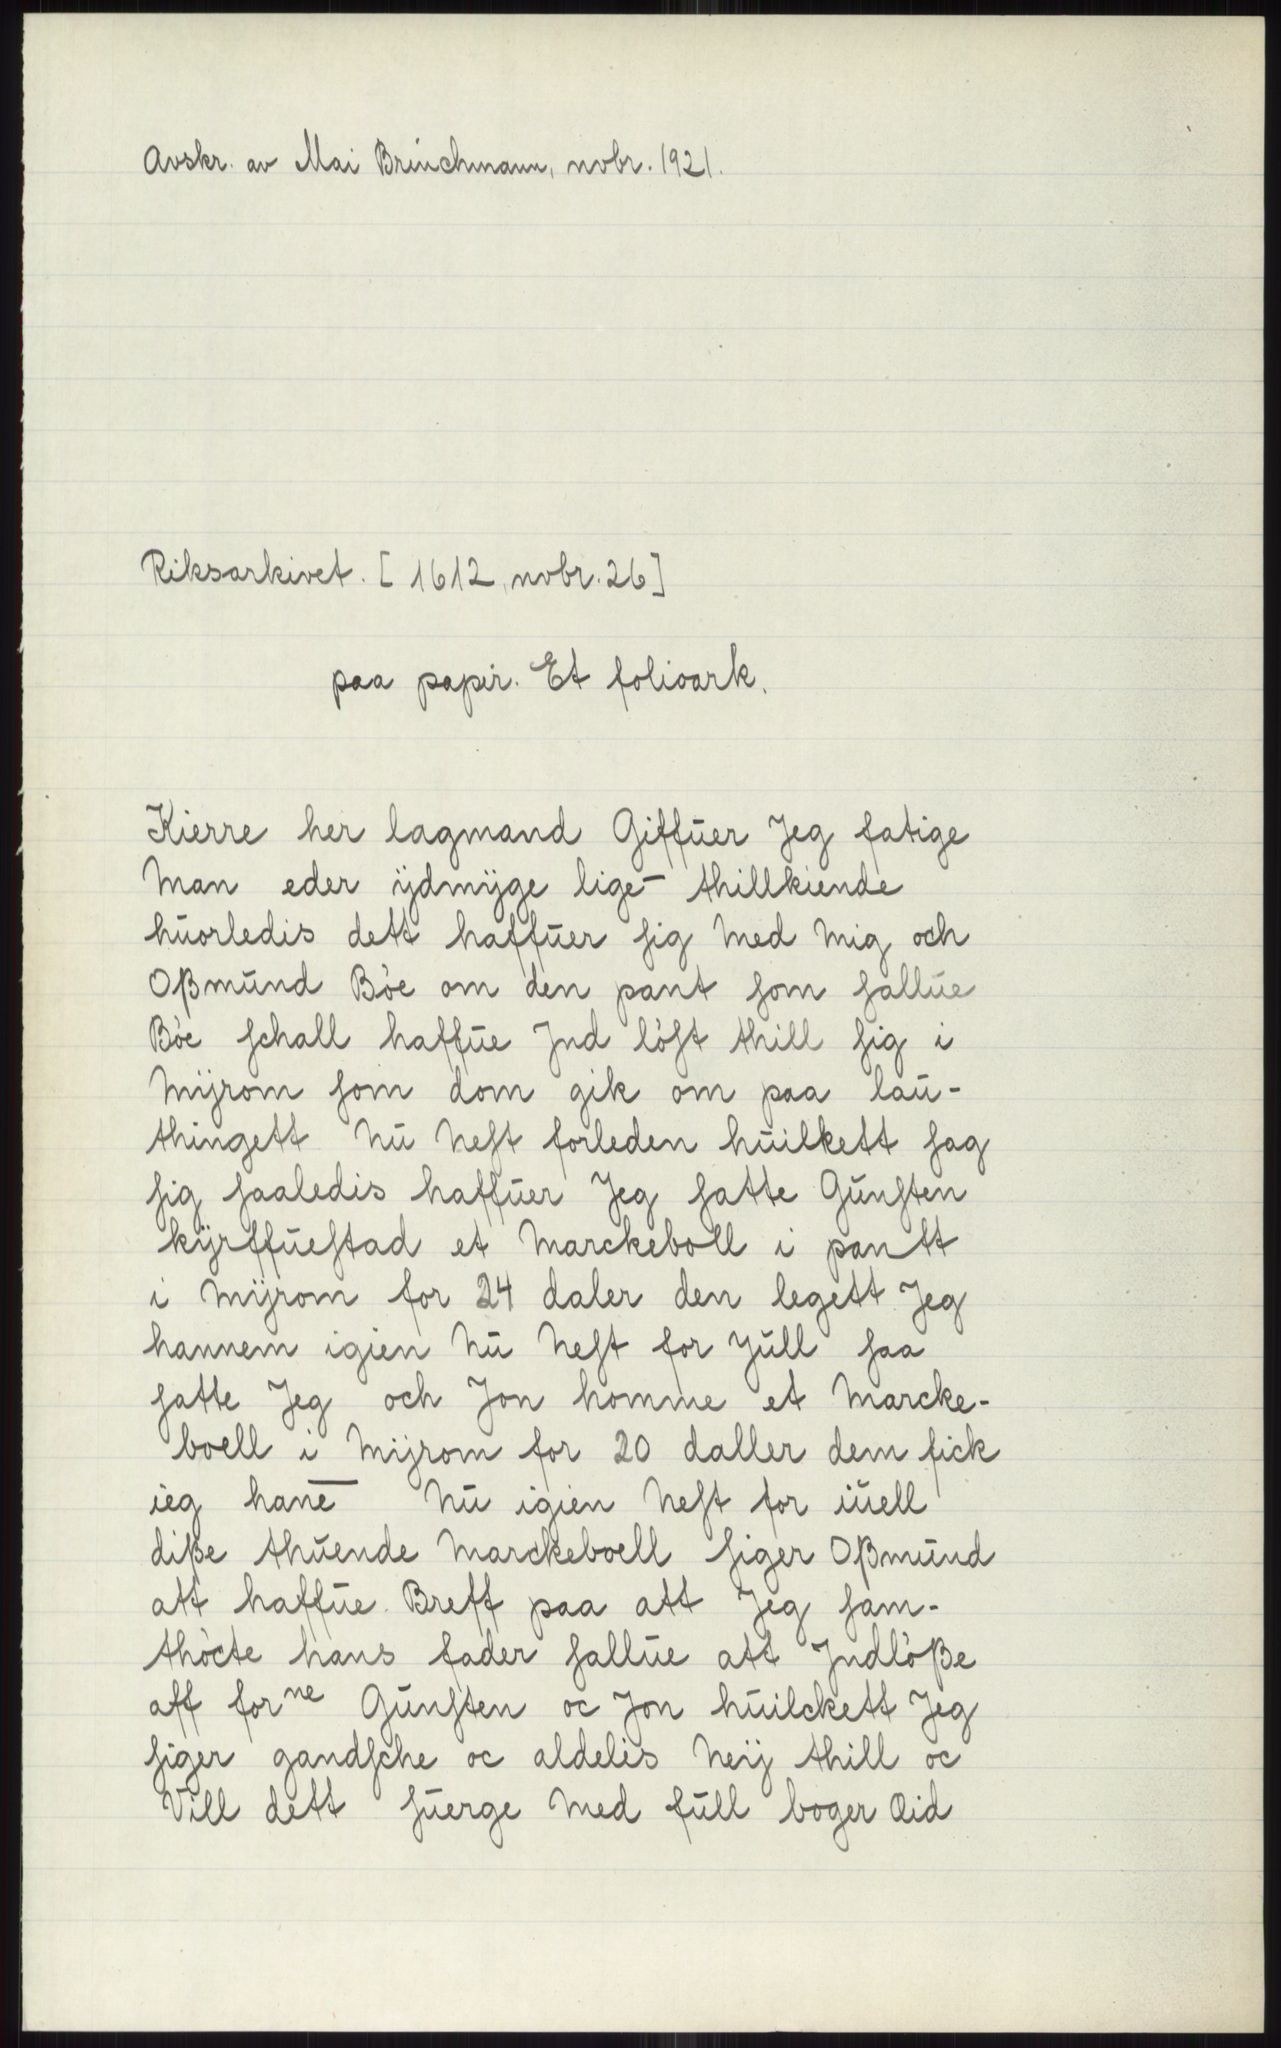 Avskr. av Mai Brinchmann, nvbr. 1921.
Riksarkivet. [1612, nvbr. 26]
paa papir. Et folioark.
Kierre her lagmand Giffuer Jeg fatige
Man eder ÿdmÿge lige- thillkiende
huorledis dett haffuer sig Med Mig och
Oßmund Bòe om den pant som sallue
Bòe schall haffue Jnd lòst thill sig i
Mÿrom som dom gik om paa lau-
thingett Nu Nest forleden huilkett sag
sig saaledis haffuer Jeg satte Gunsten
kÿrffuestad et Marckeboll i pantt
i Mÿrom for 24 daler den legett Jeg
hannem igien Nu Nest for Jull saa
satte Jeg och Jon homme et Marcke-
boell i Mÿrom for 20 daller dem fick
ieg hane̅ Nu igien Nest for iuell
diße thuende Marckeboell siger Oßmund
att haffue Breff paa att Jeg sam-
thòcte hans fader sallue att Jndlòße
aff forne Gunsten oc Jon huilckett Jeg
siger gandsche oc aldelis Neÿ thill oc
Vill dett suerge Med full boger Eid